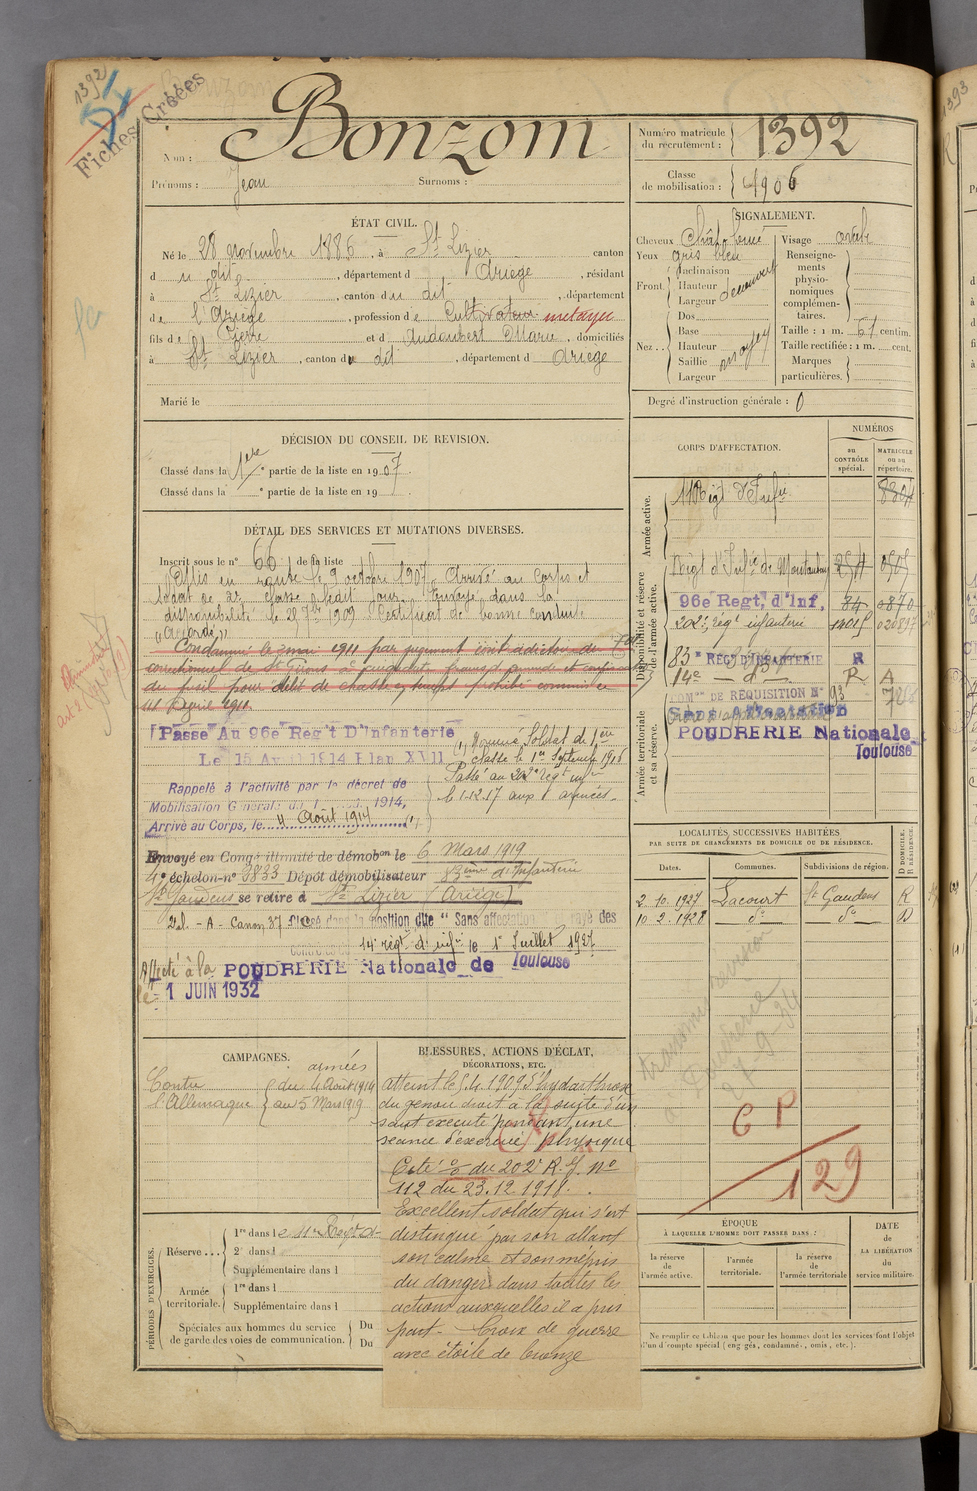 1392
Fiches Créées
Nom : Bonzom
Prénoms : Jean Surnoms :
Numéro matricule du recrutement : 1392
Classe de mobilisation : 1906
ÉTAT CIVIL.
Né le 28 novembre 1886, à St Lizier canton
d u dit, département d Ariège, résidant
à St Lizier, canton du dit, département
de l'Ariège, profession de Cultivateur métayer
fils de Pierre et d Audoubert Marie, domiciliés
à St Lizier, canton du dit, département d Ariège
Marié le
SIGNALEMENT.
Cheveux Chât. foncé
Yeux gris bleu
Front Inclinaison
Hauteur
Largeur
découvert
Nez Dos
Base
Hauteur
Saillie
Largeur
moyen
Visage ovale
Renseignements physionomiques complémentaires.
Taille : 1 m. 61 centim.
Taille rectifiée : 1 m. cent.
Marques particulières.
Degré d'instruction générale : 0
DÉCISION DU CONSEIL DE REVISION.
Classé dans la 1ere partie de la liste en 1907
Classé dans la e partie de la liste en 19 .
DÉTAIL DES SERVICES ET MUTATIONS DIVERSES.
Inscrit sous le n° 66 de la liste
Mis en route le 9 octobre 1907. Arrivé au corps et
soldat de 2e classe le dit jour. Envoyé dans la
disponibilité le 25 7bre 1909 Certificat de bonne conduite
"Accordé"
Condamné le 2 mai 1911 par jugement contradictoire du
correctionnel de St Girons à cinquante francs d'amende et confiscation
du fusil pour délit de chasse en temps prohibé commis le
Avril 1911.
Passé Au 96e Reg't D'Infanterie
Le 15 Avril 1914 Plan XVII
Rappelé à l'activité par le décret de
Mobilisation Générale du 1 1914,
Arrivé au Corps, le 4 Août 1914 (1)
(1) Nommé Soldat de 1ère
classe le 1er Septembre 1916
Passé au 202e régt infie
le 1-12-17 aux armées.
Envoyé en Congé illimité de démobon le 6 Mars 1919
4e échelon-n° 3833 Dépôt démobilisateur 83ème d'Infanterie
St Gaudens se retire à St Lizier (Ariège)
Cal. - A - Canon 37 Classé dans la position dite "Sans affectation" rayé des
contrôles du 14e régt d'infie le 1er Juillet 1927
Affecté à la POUDRERIE Nationale de Toulouse
le - 1 JUIN 1932
CORPS D'AFFECTATION.
NUMÉROS
au CONTRÔLE spécial.
MATRICULE ou au répertoire.
Armée active.
11 Régt d'Infie
Disponibilité et réserve de l'armée active.
Régt d'Infie de Montauban
96e Regt, d'Inf, 84 0870
202e régt infanterie
83e REGt D'INFANTERIE R
14e — do — R A
Armée territoriale et sa réserve.
COMon DE RÉQUISITION N° 93
Sans Affectation
POUDRERIE Nationale
Toulouse
LOCALITÉS SUCCESSIVES HABITÉES
PAR SUITE DE CHANGEMENTS DE DOMICILE OU DE RÉSIDENCE.
Dates. Communes. Subdivisions de région. D DOMICILE. R RÉSIDENCE.
2. 10. 1927 Lacourt St Gaudens R
10 2. 1928 do do D
CP
129
CAMPAGNES.
Contre l'Allemagne
armées
du 4 Août 1914
au 5 Mars 1919
BLESSURES, ACTIONS D'ÉCLAT, DÉCORATIONS, ETC.
atteint le 5.4.1909 d'hydarthrose
du genou droit à la suite d'un
saut exécuté pendant une
séance d'exercice physique
Cité o/ du 202e R.I. No
112 du 23.12.1918.
Excellent soldat qui s'est
distingué par son allant
son calme et son mépris
du danger dans toutes les
actions auxquelles il a pris
part. Croix de guerre
avec étoile de bronze
PÉRIODES D'EXERCICES.
Réserve ... 1re dans le 11e Régt d
2e dans l
Supplémentaire dans l
Armée territoriale. 1re dans l
Supplémentaire dans l
Spéciales aux hommes du service de garde des voies de communication. Du
Du
ÉPOQUE
À LAQUELLE L'HOMME DOIT PASSER DANS :
la réserve de l'armée active.
l'armée territoriale.
la réserve de l'armée territoriale
DATE de LA LIBÉRATION du service militaire.
Ne remplir ce tableau que pour les hommes dont les services font l'objet
d'un décompte spécial (engagés, condamnés, omis, etc.).